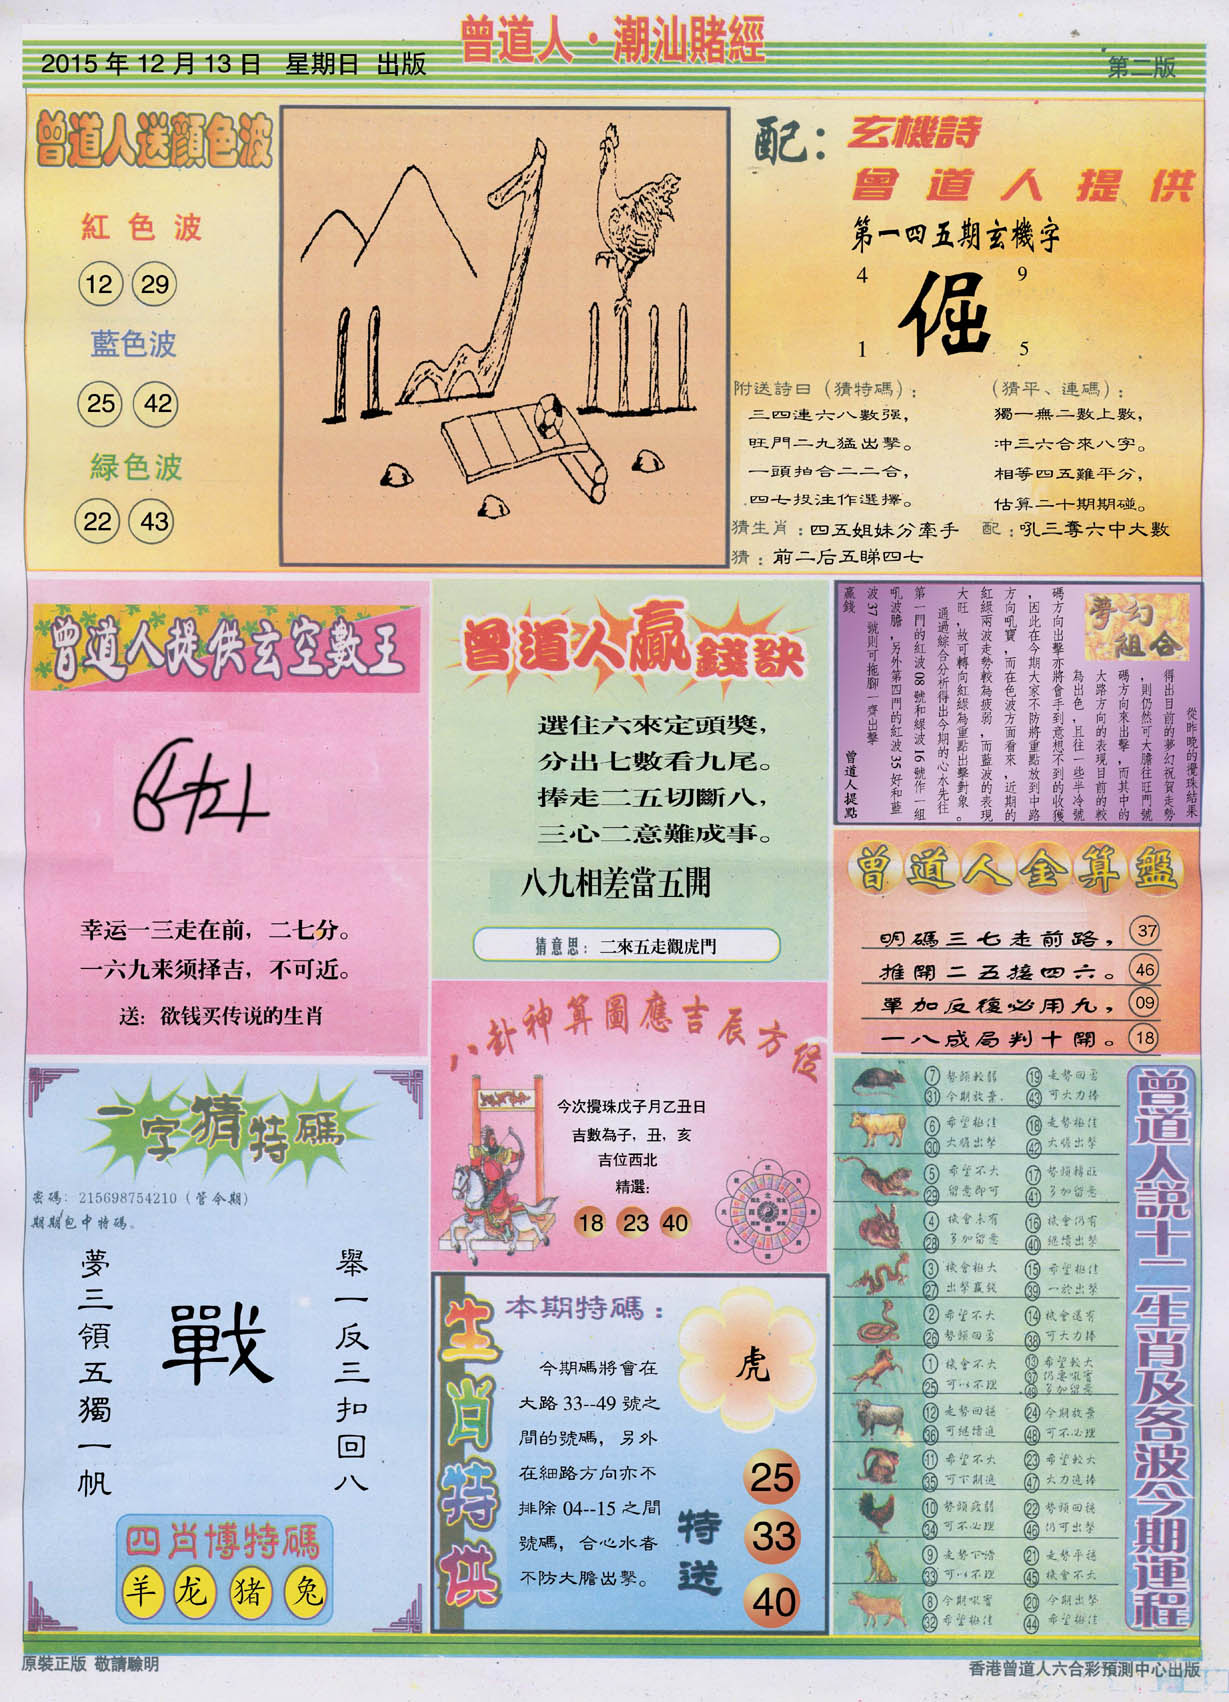 曾道人·潮汕賭經
2015年12月13日 星期日 出版
第二版
曾道人送顏色波
紅色波
12 29
藍色波
25 42
緑色波
22 43
配：玄機詩
曾道人提供
第一四五期玄機字
4 9
倔
1 5
附送詩曰（猜特碼）：
三四連六八數强，
旺門二九猛出擊。
一頭拍合二二合，
四七投注作選擇。
（猜平、連碼）：
獨一無二數上數，
冲三六合來八字。
相等四五難平分，
估算二十期期碰。
猜生肖：四五姐妹分牽手
配：吼三奪六中大數
猜：前二后五睇四七
曾道人提供玄空數王
幸运一三走在前，二七分。
一六九来须择吉，不可近。
送：欲钱买传说的生肖
曾道人贏錢訣
選住六來定頭獎，
分出七數看九尾。
捧走二五切斷八，
三心二意難成事。
八九相差當五開
猜意思：二來五走觀虎門
夢幻組合
從昨晚的攪珠結果
得出目前的夢幻祝賀走勢
，則仍然可大膽往旺門號
碼方向來出擊，而其中的
大路方向的表現目前的較
為出色，且往一些半冷號
碼方向出擊亦將會手到意想不到的收獲
，因此在今期大家不防將重點放到中路
方向吼寶，而在色波方面看來，近期的
紅綠兩波走勢較為疲弱，而藍波的表現
大旺，故可轉向紅綠為重點出擊對象。
通過綜合分析得出今期的心水先往
第一門的紅波08號和緑波16號作一組
吼波膽，另外第四門的紅波35好和藍
波37號則可拖腳一齊出擊
贏錢
曾道人提點
曾道人金算盤
明碼三七走前路， 37
推開二五接四六。 46
單加反復必用九， 09
一八成局判十開。 18
八卦神算圖應吉辰方位
今次攪珠戊子月乙丑日
吉數為子，丑，亥
吉位西北
精選：
18 23 40
一字猜特碼
密碼：215698754210（管今期）
期期包中特碼。
舉一反三扣回八
戰
夢三領五獨一帆
四肖博特碼
羊 龙 猪 兔
生肖特供
本期特碼：
虎
今期碼將會在
大路33--49號之
間的號碼，另外
在細路方向亦不
排除04--15之間
號碼，合心水者
不防大膽出擊。
特送
25
33
40
曾道人説十二生肖及各波今期運程
7 勢頭較弱 19 走勢回勇
31 今期放棄 43 可大力捧
6 希望極佳 18 走勢極佳
30 大膽出擊 42 大膽出擊
5 希望不大 17 勢頭轉旺
29 留意即可 41 多加留意
4 機會未有 16 機會仍有
28 多加留意 40 繼續出擊
3 機會極大 15 希望極佳
27 出擊贏錢 39 一於出擊
2 希望不大 14 機會還有
26 勢頭回勇 38 可大力捧
1 機會不大 13 希望較大
25 可以不理 37 仍要吼實
49 多加留意
12 走勢回穩 24 今期放棄
36 可繼續追 48 可不必理
11 希望不大 23 希望較大
35 可下期追 47 大力追捧
10 勢頭疲弱 22 勢頭回穩
34 可不必理 46 仍可出擊
9 走勢下滑 21 走勢平穩
33 可以不理 45 機會不大
8 今期吼實 20 今期出擊
32 希望極佳 44 希望極佳
原裝正版 敬請驗明
香港曾道人六合彩預測中心出版